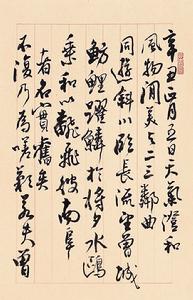 辛丑正月五日天氣澄和
風物閒美与二三鄰曲
同遊斜川臨長流望曾城
魴鯉躍鱗於將夕水鷗
乘和以翻飛彼南阜
者名實舊矣
不復乃為嗟歎若夫曾